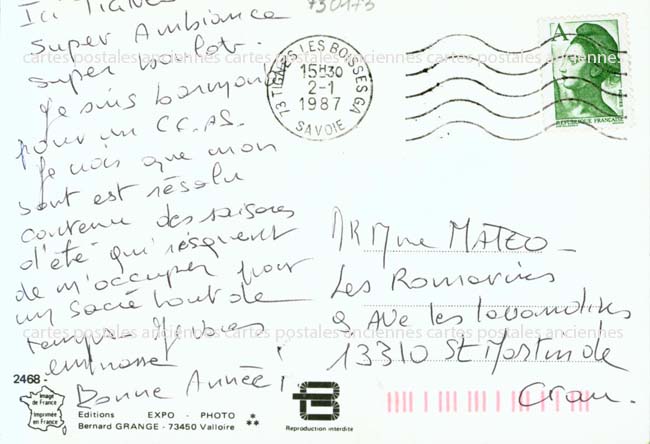 730173
Ici Tignes
Super Ambiance
super boulot.
Je suis barman
pour un CC.AS.
Je crois que mon
sort est résolu
contenu des saisons
d'été qui risquent
de m'occuper pour
un sacré bout de
temps. Je vous
embrasse
Bonne Année!
73 TIGNES LES BOISSES GA
15H30
2-1
1987
SAVOIE
A
REPUBLIQUE FRANCAISE
MR Mme MATEO
Les Romarins
9 AVe les lavandins
13310 St Martin de
Crau.
cartes postales anciennes cartes postales anciennes cartes postales anciennes
cartes postales anciennes cartes postales anciennes cartes postales anciennes
2468-
Image
de France
Imprimée
en France
Editions EXPO - PHOTO
Bernard GRANGE - 73450 Valloire
Reproduction interdite